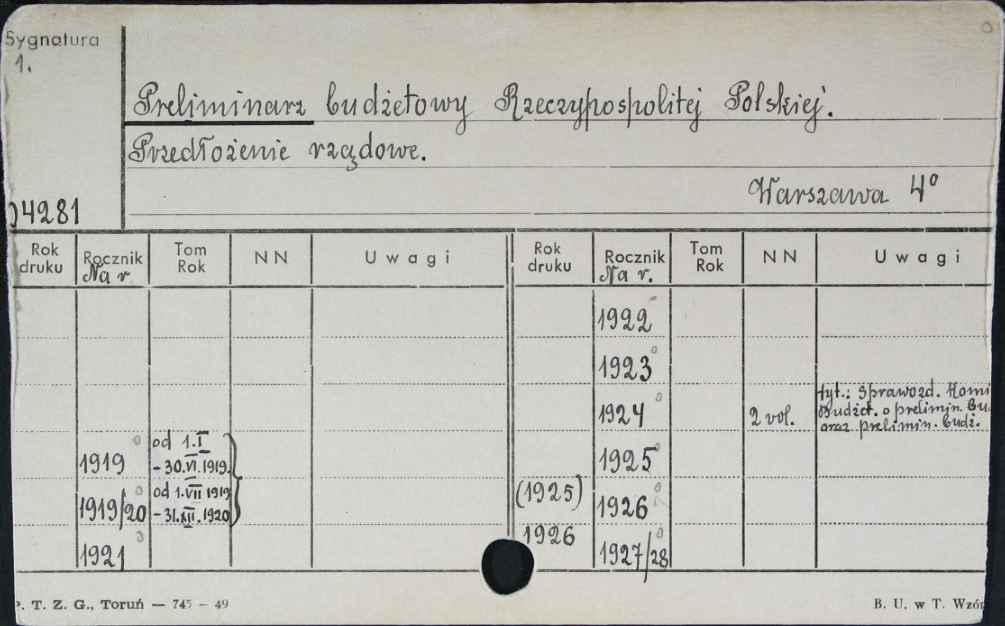 Sygnatura
1.
Preliminarz budżetowy Rzeczypospolitej Polskiej.
Przedłożenie rządowe.
Warszawa 4º
04281
Rok druku Rocznik Na r Tom Rok NN Uwagi Rok druku Rocznik Na r. Tom Rok NN Uwagi
1922
1923
1924 2 vol. tyt.: Sprawozd. Komi
Budżet. o prelimin. Bu
oraz prelimin. budż.
1919 od 1.I
-30.VI.1919.
1925
1919/20 od 1.VII 1919
-31.XII.1920
(1925) 1926
1921
1926 1927/28
P. T. Z. G., Toruń — 745 — 49
B. U. w T. Wzór